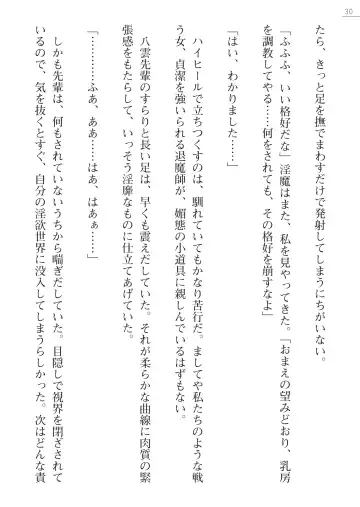 30
たら、きっと足を撫でまわすだけで発射してしまうにちがいない。
「ふふふ、いい格好だな」淫魔はまた、私を見やってきた。「おまえの望みどおり、乳房
を調教してやる……何をされても、その格好を崩すなよ」
「はい、わかりました……」
ハイヒールで立ちつくすのは、馴れていてもかなり苦行だ。ましてや私たちのような戦
う女、貞潔を強いられる退魔師が、媚態の小道具に親しんでいるはずもない。
八雲先輩のすらりと長い足は、早くも震えだしていた。それが柔らかな曲線に肉質の緊
張感をもたらして、いっそう淫靡なものに仕立てあげていた。
「…………ふあ、ああ……はあ、はあぁ……」
しかも先輩は、何もされていないうちから喘ぎだしていた。目隠しで視界を閉ざされて
いるので、気を抜くとすぐ、自分の淫欲世界に没入してしまうらしかった。次はどんな責